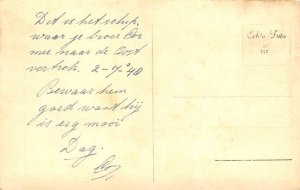 Dit is het schip,
waar je broer Cor
mee naar de Oost
vertrok. 2-7-'48
Bewaar hem
goed want hij
is erg mooi
Dag.
Echte Foto